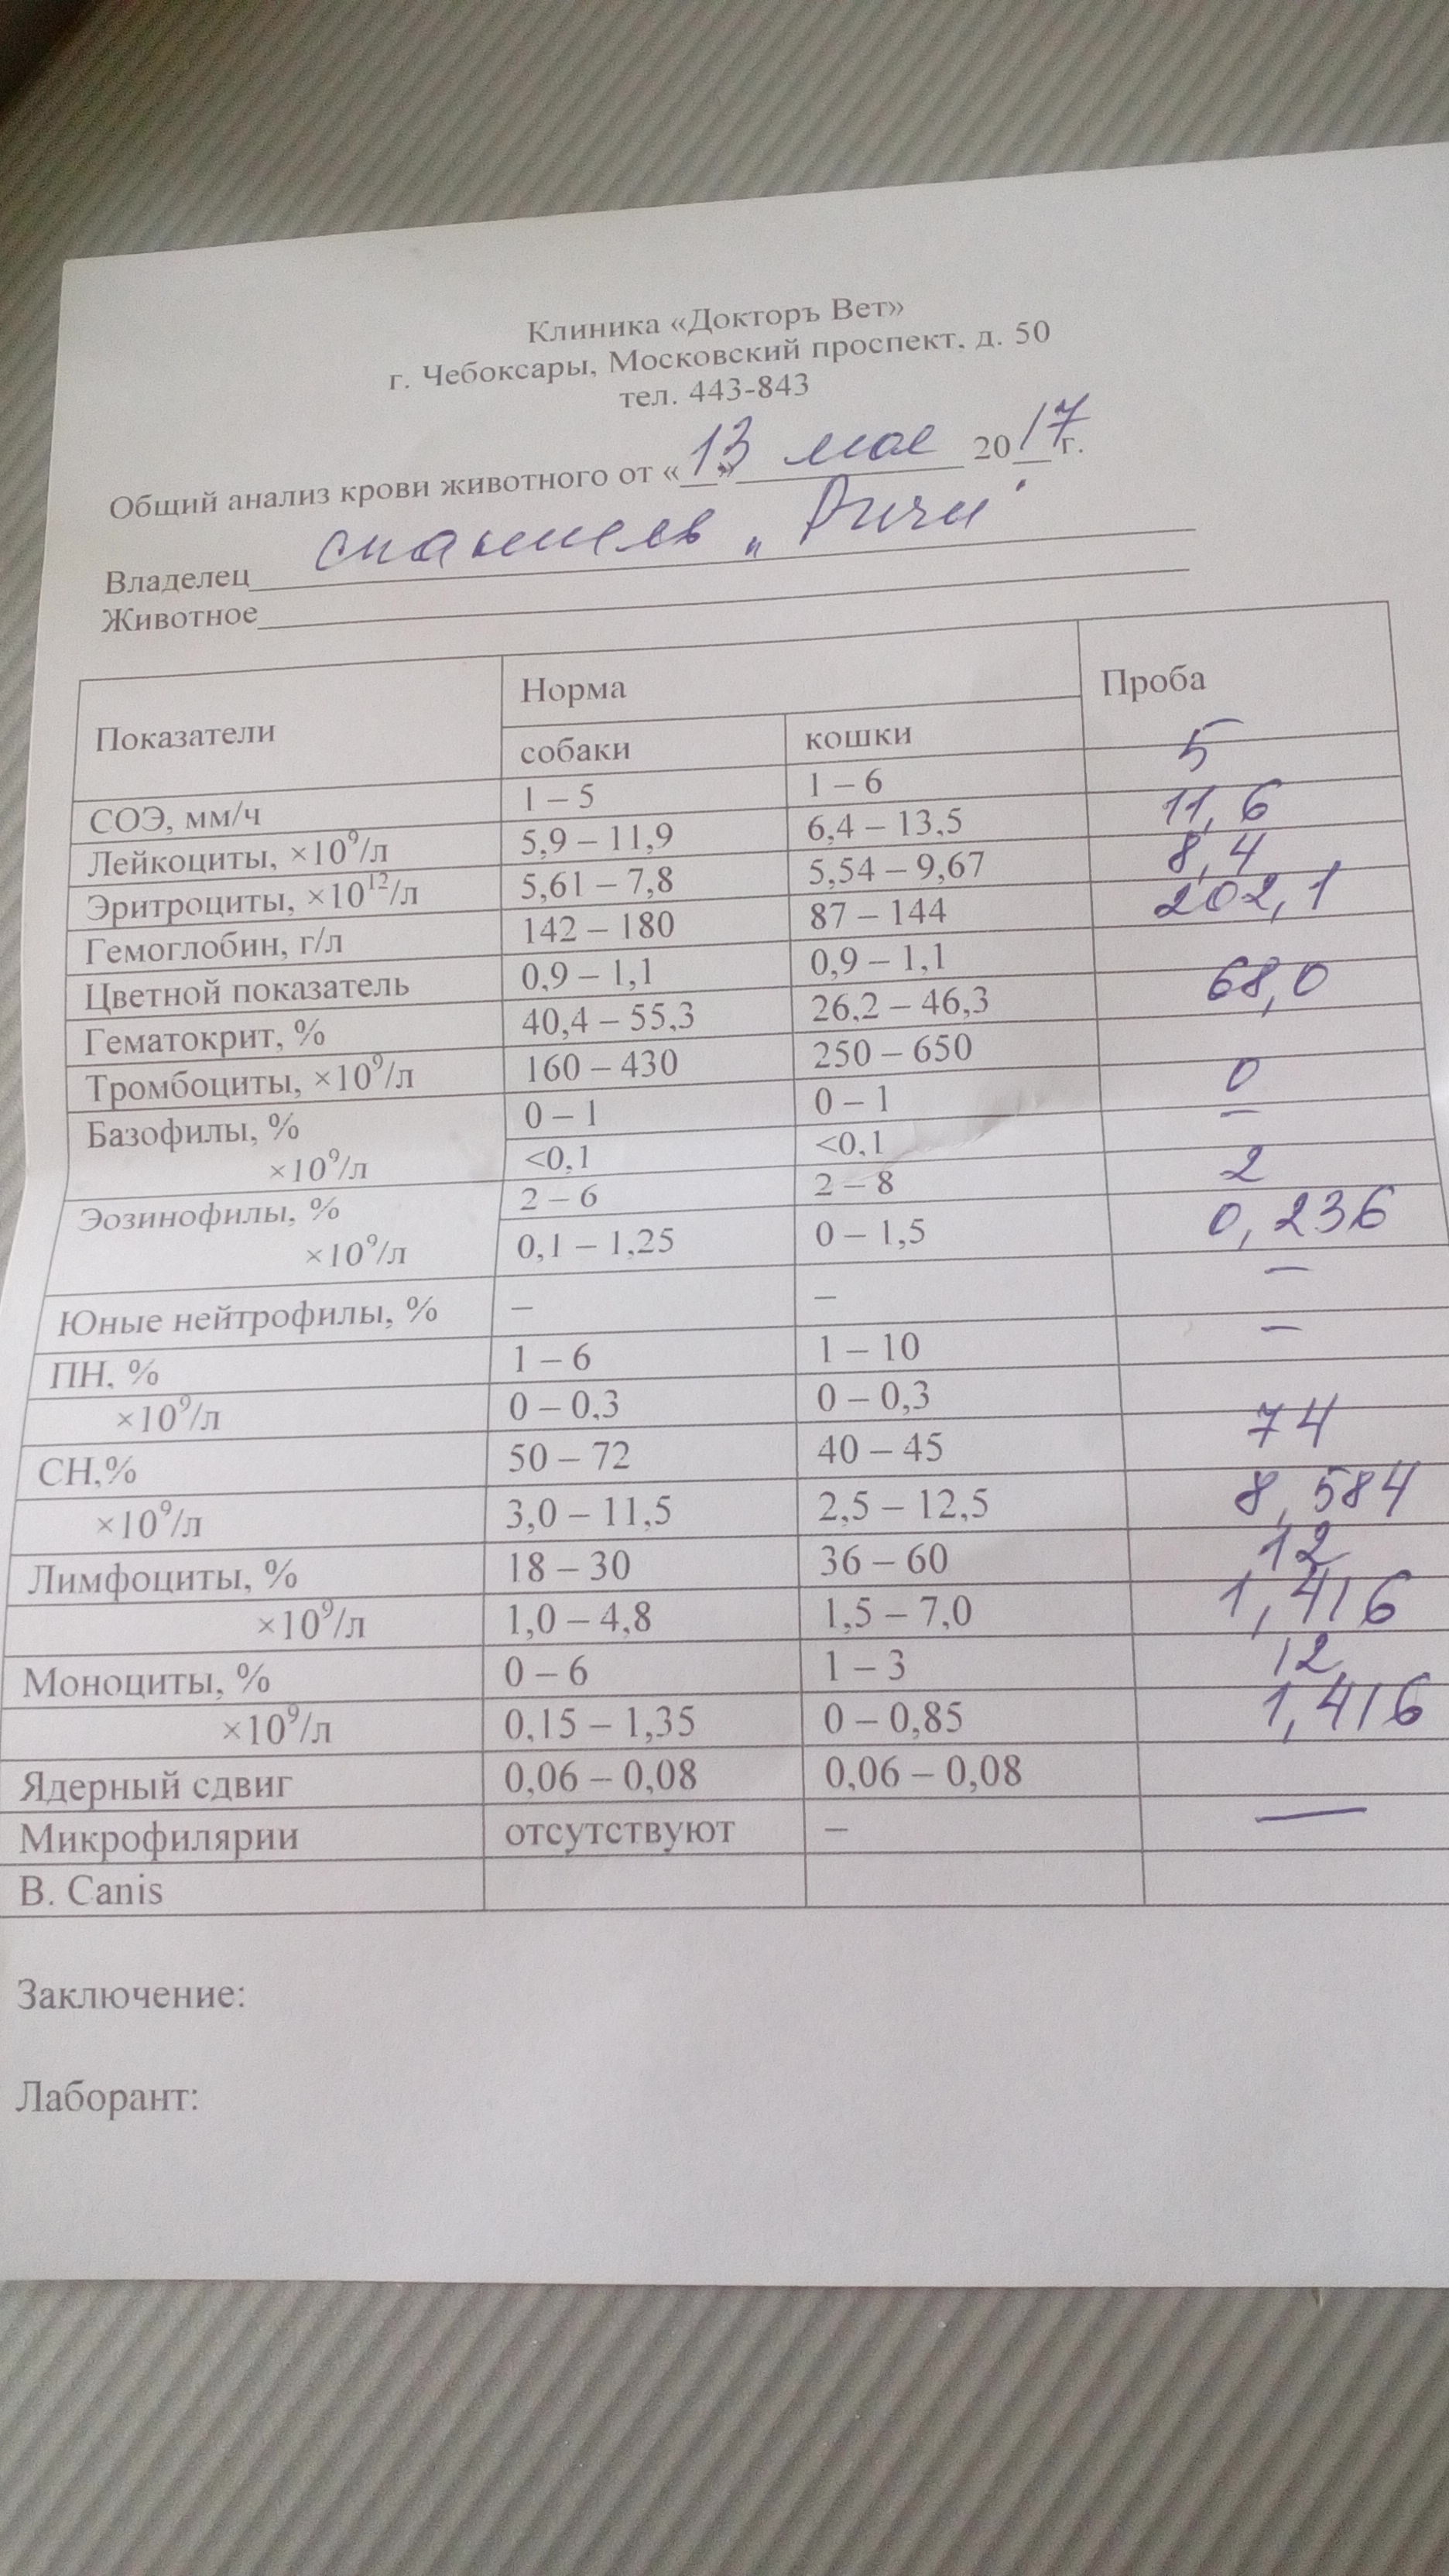 Клиника «Докторъ Вет»
г. Чебоксары, Московский проспект, д. 50
тел. 443-843
Общий анализ крови животного от «13» мая 2017 г.
Владелец спаниель „Ричи"
Животное
Показатели Норма Проба
собаки кошки
СОЭ, мм/ч 1 – 5 1 – 6 5
Лейкоциты, ×10⁹/л 5,9 – 11,9 6,4 – 13,5 11,6
Эритроциты, ×10¹²/л 5,61 – 7,8 5,54 – 9,67 8,4
Гемоглобин, г/л 142 – 180 87 – 144 202,1
Цветной показатель 0,9 – 1,1 0,9 – 1,1
Гематокрит, % 40,4 – 55,3 26,2 – 46,3 68,0
Тромбоциты, ×10⁹/л 160 – 430 250 – 650
Базофилы, % 0 – 1 0 – 1 0
×10⁹/л <0,1 <0,1 –
Эозинофилы, % 2 – 6 2 – 8 2
×10⁹/л 0,1 – 1,25 0 – 1,5 0,236
Юные нейтрофилы, % – – –
ПН, % 1 – 6 1 – 10 –
×10⁹/л 0 – 0,3 0 – 0,3
СН,% 50 – 72 40 – 45 74
×10⁹/л 3,0 – 11,5 2,5 – 12,5 8,584
Лимфоциты, % 18 – 30 36 – 60 12
×10⁹/л 1,0 – 4,8 1,5 – 7,0 1,416
Моноциты, % 0 – 6 1 – 3 12
×10⁹/л 0,15 – 1,35 0 – 0,85 1,416
Ядерный сдвиг 0,06 – 0,08 0,06 – 0,08
Микрофилярии отсутствуют – —
B. Canis
Заключение:
Лаборант: